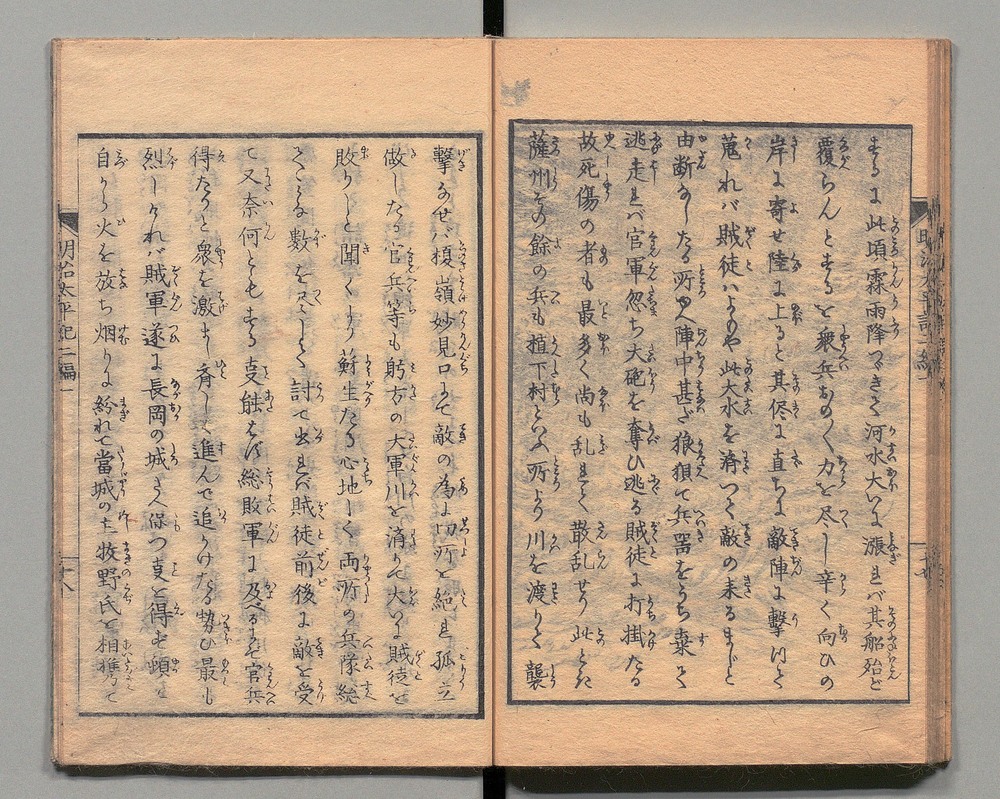 するに此頃霖雨降つゞきて河水大いに漲れバ其船殆ど
覆らんとするを衆兵おのく力を尽し辛く向ひの
岸に寄せ陸に上ると其侭に直ちに敵陣に撃けて
蒐れバ賊徒ハよもや此大水を済つて敵の来るまじと
由断なしたる所ゆへ陣中甚だ狼狽て兵器をうち棄て
逃走れバ官軍忽ち大砲を奪ひ逃る賊徒に打掛たる
故死傷の者も最多く尚も乱れて散乱せり此とき
薩州その餘の兵も植下村といふ所より川を渡りて襲
撃なせバ榎嶺妙見口にて敵の為に切所を絶れ孤立
做したる官兵等も躬方の大軍川を済りて大いに賊徒を
敗りしと聞くより蘇生たる心地して両所の兵隊総
て又奈何ともする事能はず総敗軍に及べるを官兵
得たりと衆を激まし斉しく進んで追かけたる勢ひ最も
烈しけれバ賊軍遂に長岡の城さへ保つ事を得ず頓て
自から火を放ち烟りに紛れて當城の主牧野氏を相携て
明治太平記二編一